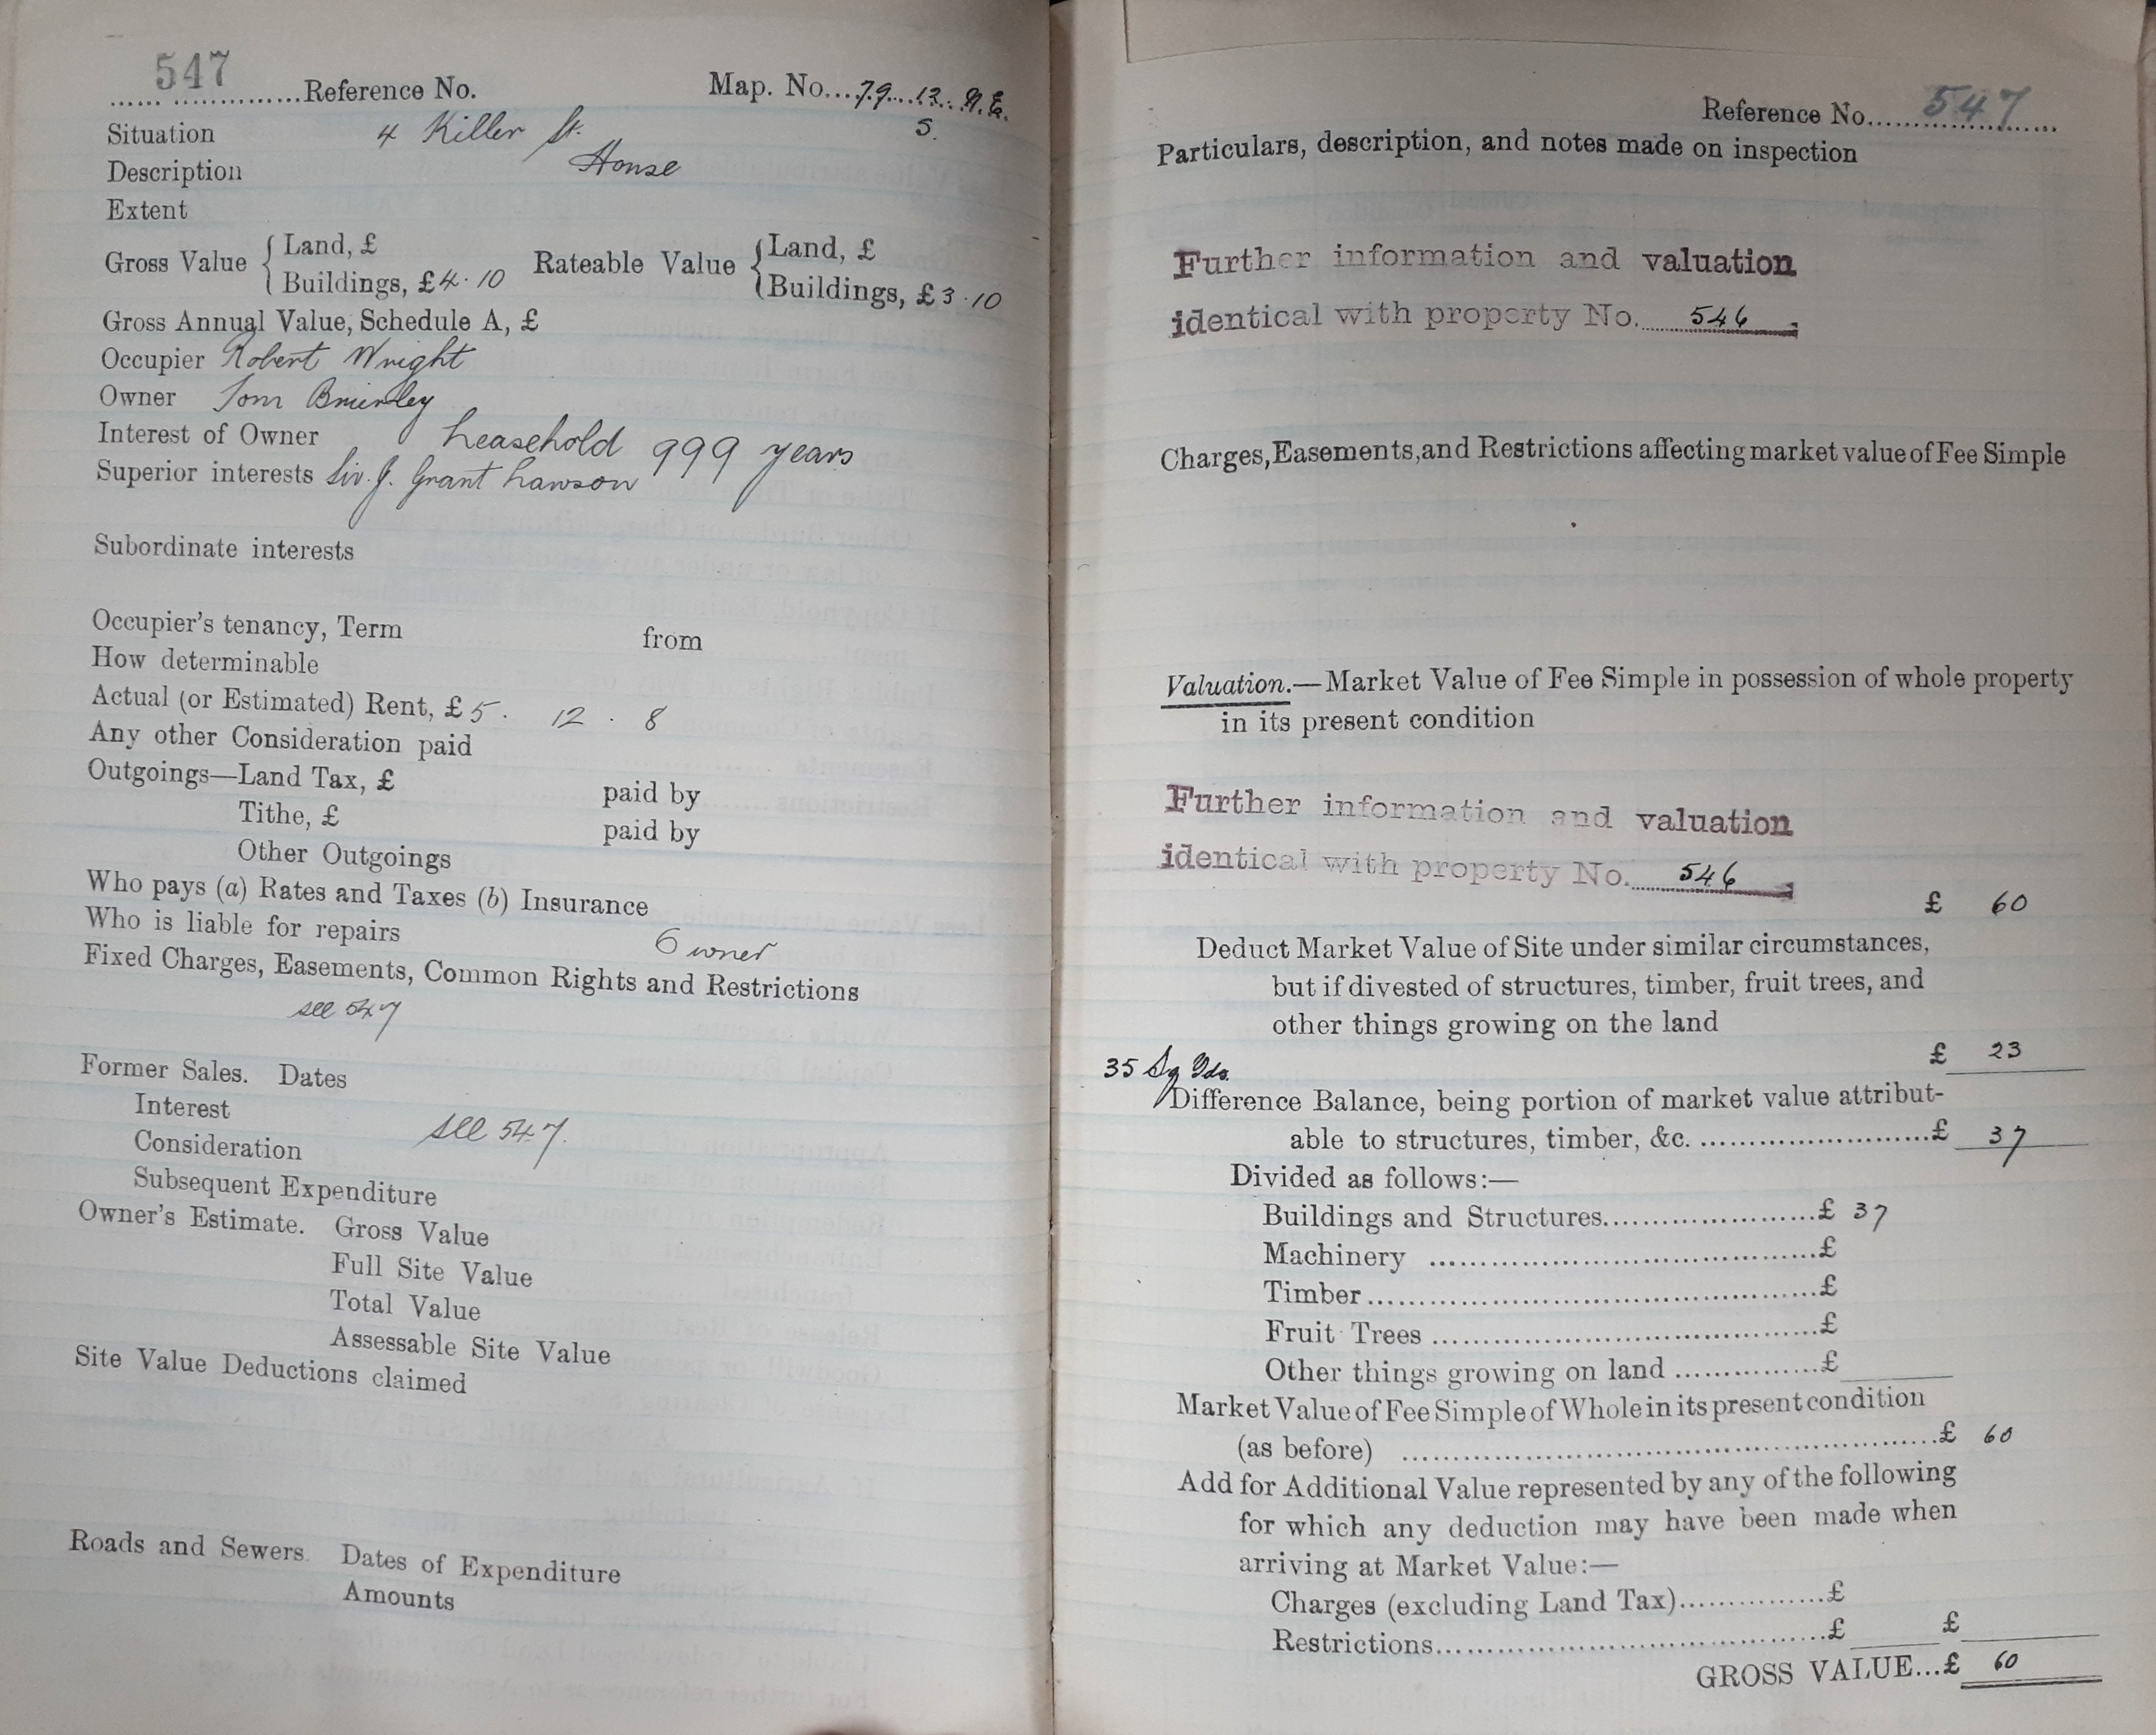 547
Reference No. Map. No. 79 13. N.E.
S.
Situation 4 Killer St.
Description House
Extent
Gross Value { Land, £ Rateable Value { Land, £
Buildings, £4.10 Buildings, £3.10
Gross Annual Value, Schedule A, £
Occupier Robert Wright
Owner Tom Brierley
Interest of Owner Leasehold 999 years
Superior interests Sir. J. Grant Lawson
Subordinate interests
Occupier's tenancy, Term from
How determinable
Actual (or Estimated) Rent, £5. 12. 8
Any other Consideration paid
Outgoings—Land Tax, £ paid by
Tithe, £ paid by
Other Outgoings
Who pays (a) Rates and Taxes (b) Insurance
Who is liable for repairs Owner
Fixed Charges, Easements, Common Rights and Restrictions
see 547
Former Sales. Dates
Interest
Consideration see 547.
Subsequent Expenditure
Owner's Estimate. Gross Value
Full Site Value
Total Value
Assessable Site Value
Site Value Deductions claimed
Roads and Sewers. Dates of Expenditure
Amounts
Reference No. 547
Particulars, description, and notes made on inspection
Further information and valuation
identical with property No. 546
Charges, Easements, and Restrictions affecting market value of Fee Simple
Valuation.—Market Value of Fee Simple in possession of whole property
in its present condition
Further information and valuation
identical with property No. 546
£ 60
Deduct Market Value of Site under similar circumstances,
but if divested of structures, timber, fruit trees, and
other things growing on the land
£ 23
35 Sq Yds.
Difference Balance, being portion of market value attribut-
able to structures, timber, &c. £ 37
Divided as follows:—
Buildings and Structures £ 37
Machinery £
Timber £
Fruit Trees £
Other things growing on land £
Market Value of Fee Simple of Whole in its present condition
(as before) £ 60
Add for Additional Value represented by any of the following
for which any deduction may have been made when
arriving at Market Value:—
Charges (excluding Land Tax) £
Restrictions £ £
GROSS VALUE...£ 60